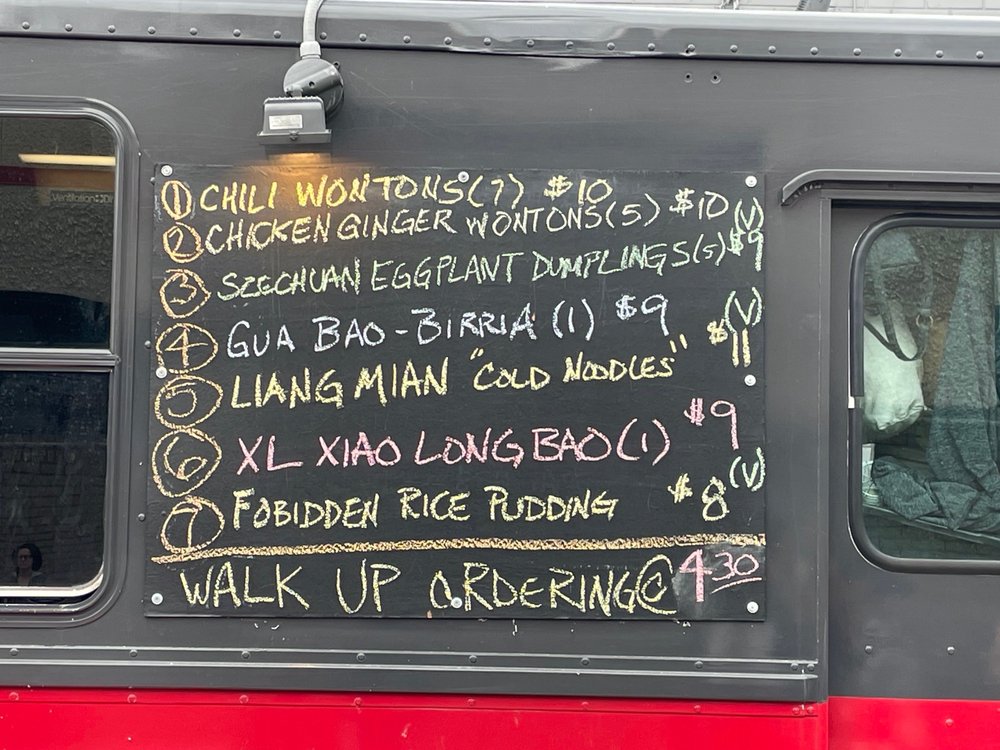 1 CHILI WONTONS (7) $10
2 CHICKEN GINGER WONTONS (5) $10
3 SZECHUAN EGGPLANT DUMPLINGS (5) $9 (V)
4 GUA BAO - BIRRIA (1) $9
5 LIANG MIAN "COLD NOODLES" $11 (V)
6 XL XIAO LONG BAO (1) $9
7 FOBIDDEN RICE PUDDING $8 (V)
WALK UP ORDERING @ 430